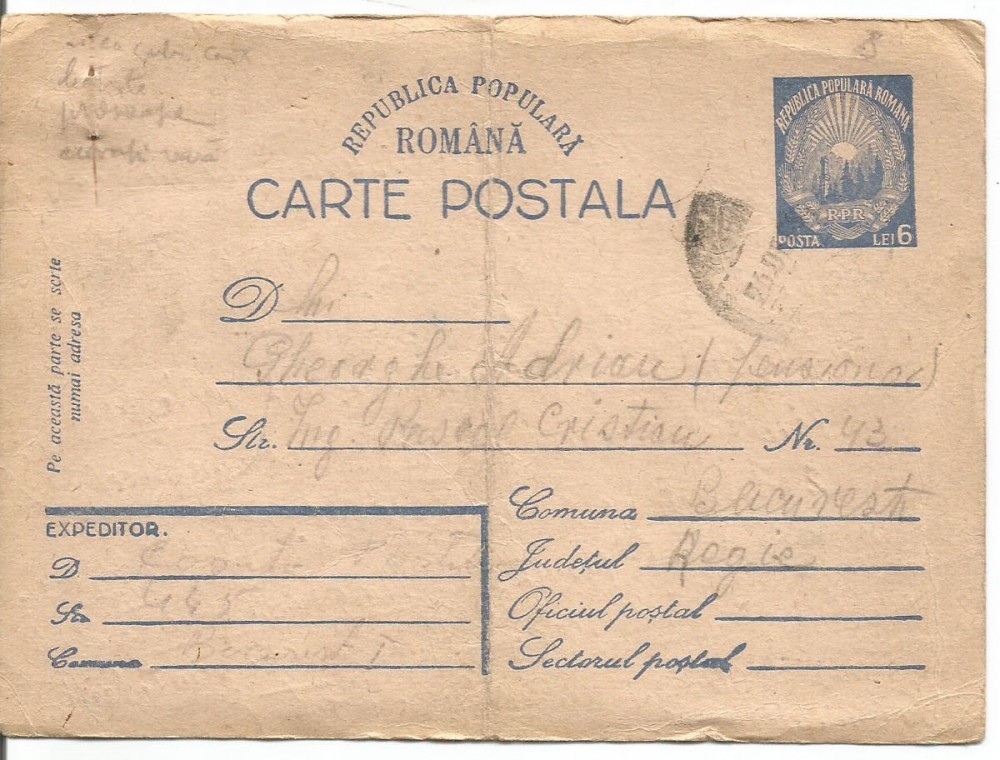 REPUBLICA POPULARĂ
ROMÂNĂ
CARTE POSTALA
REPUBLICA POPULARA ROMANA
RPR
POSTA LEI 6
Pe această parte se scrie
numai adresa
D
Gheorghe Adrian (pensionar)
Str. Ing. Pascal Cristian Nr. 43
Comuna Bucuresti
Județul Regie
Oficiul poștal
Sectorul poștal
EXPEDITOR.
D
Str. 445
Comuna București I